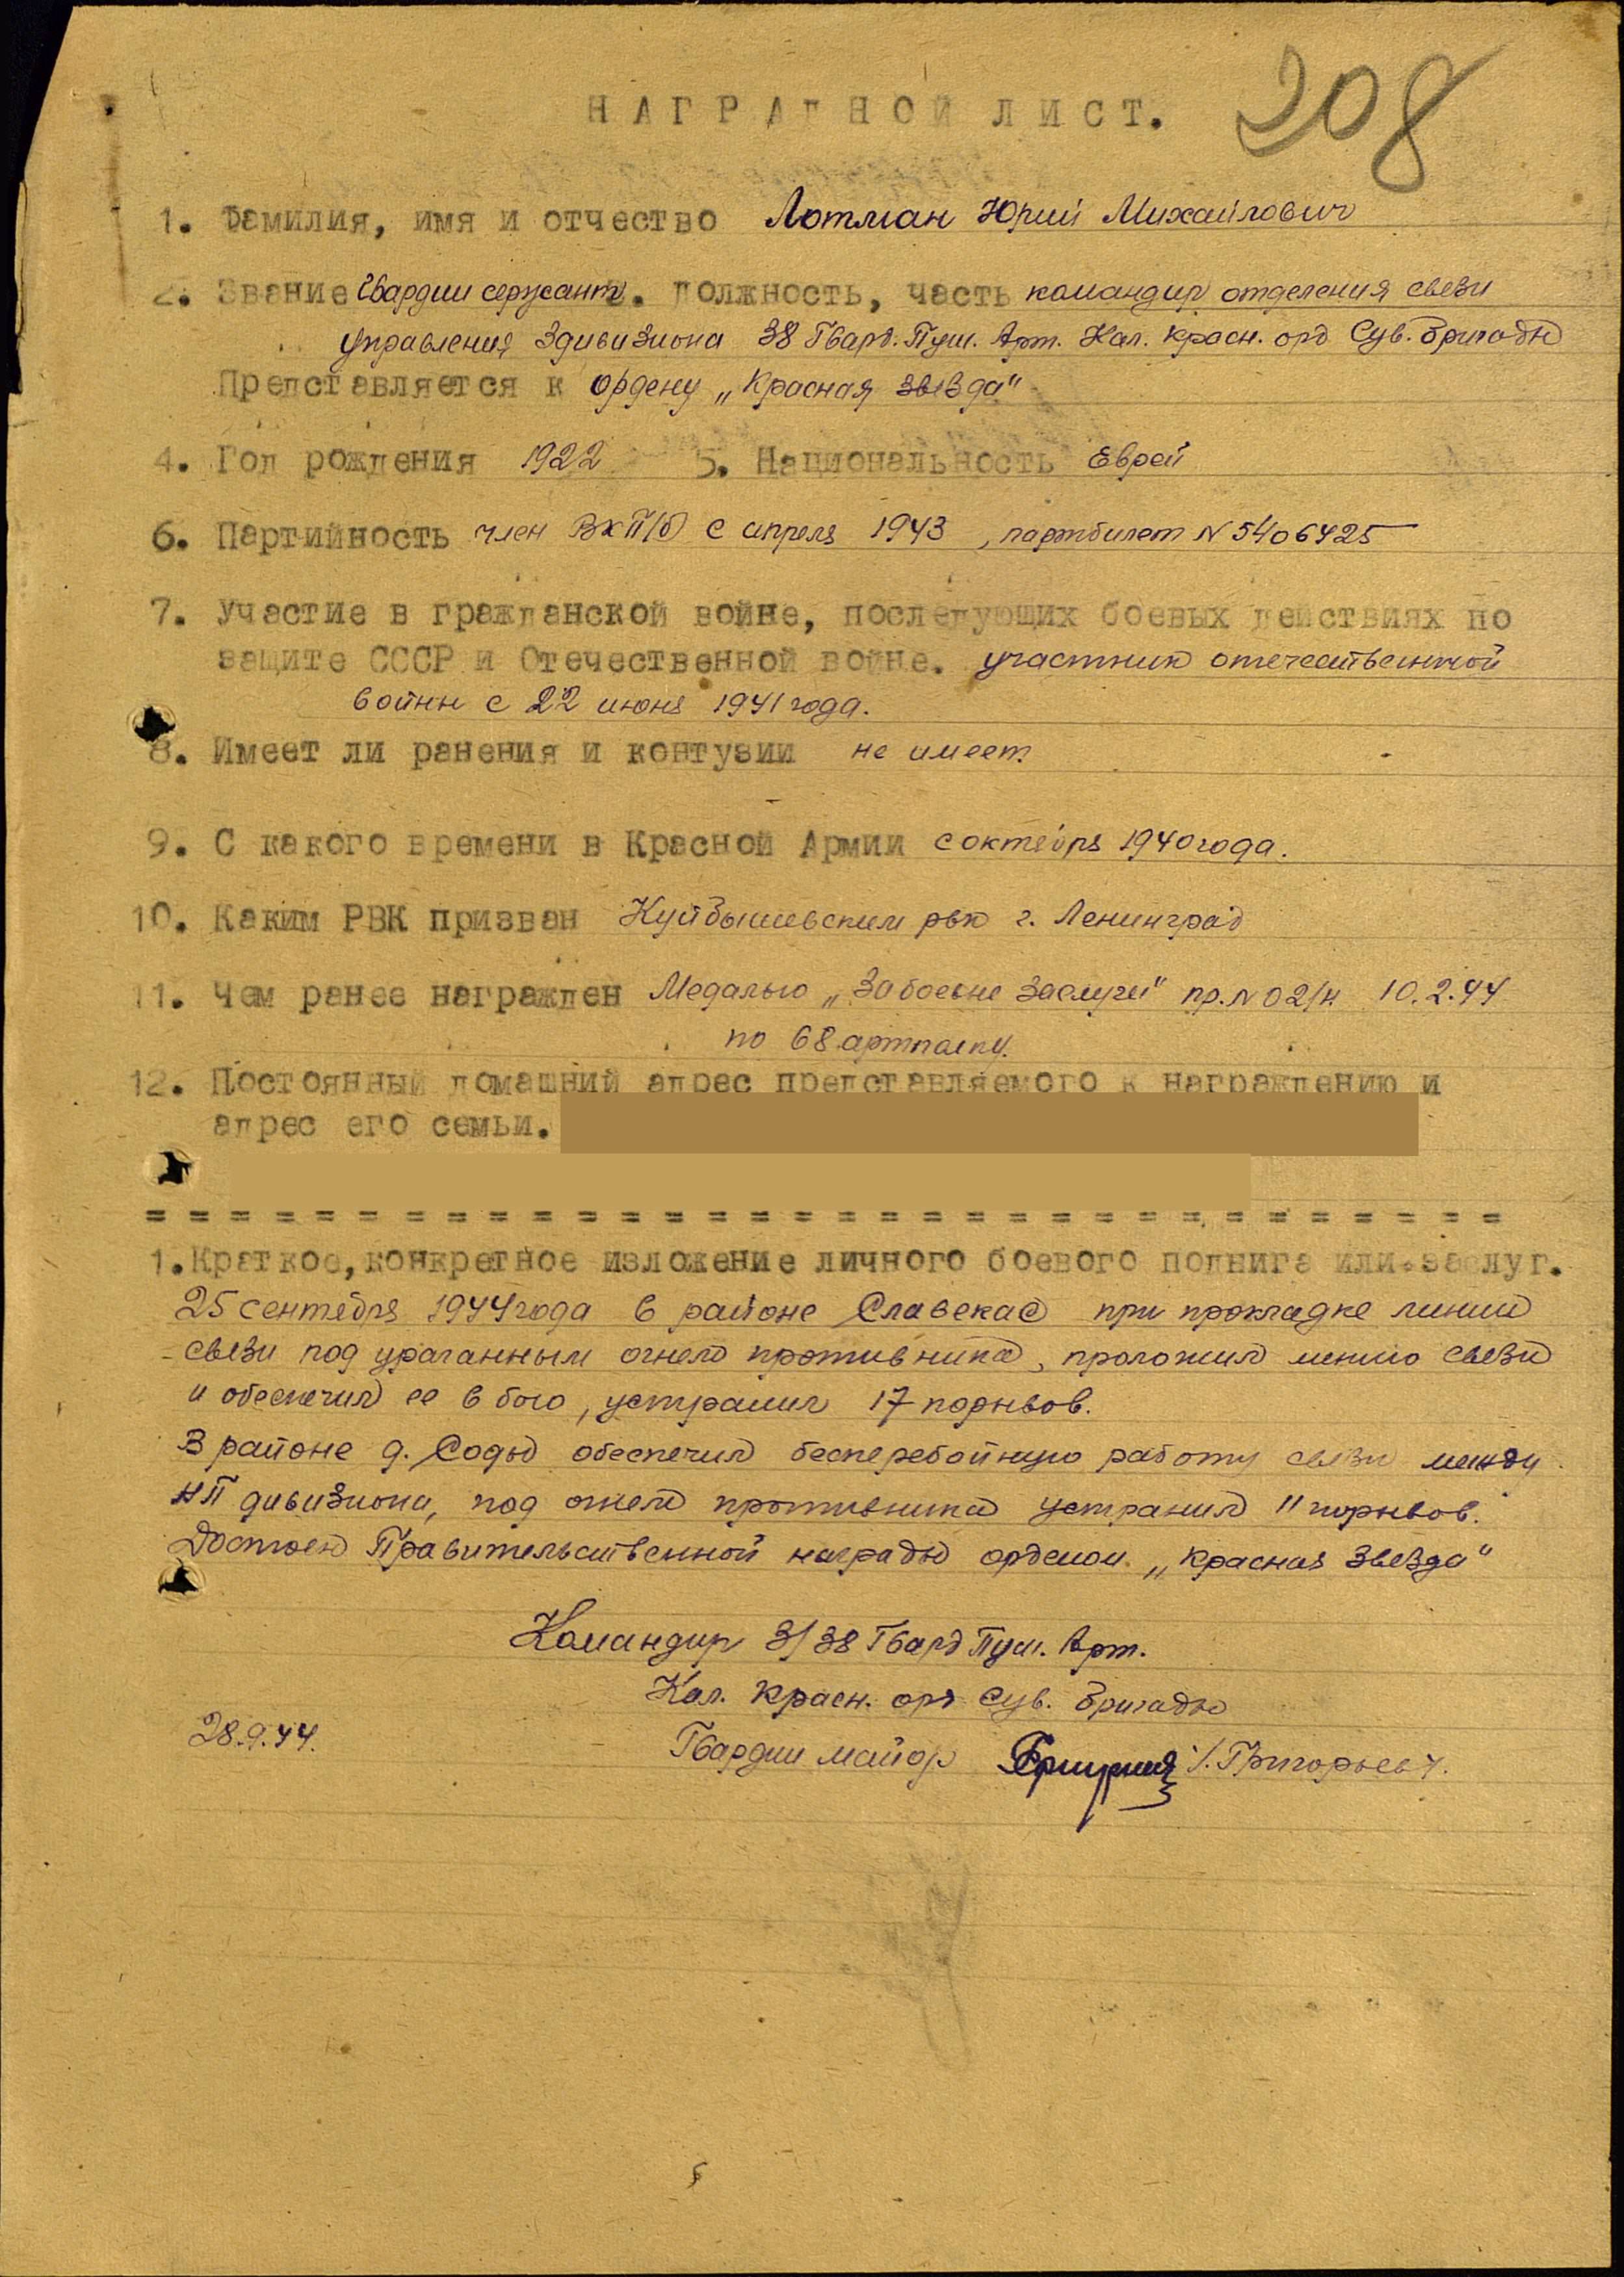 НАГРАДНОЙ ЛИСТ. 208
1. Фамилия, имя и отчество Лотман Юрий Михайлович
2. Звание Гвардии сержант. Должность, часть командир отделения связи
управления 3дивизиона 38 Гвард. Пуш. Арт. Кал. красн. орд Сув. бригады
Представляется к ордену „Красная звезда"
4. Год рождения 1922 5. Национальность Еврей
6. Партийность член ВКП/б/ с апреля 1943, партбилет N 5406425
7. Участие в гражданской войне, последующих боевых действиях по
защите СССР и Отечественной войне. участник отечественной
войны с 22 июня 1941 года.
8. Имеет ли ранения и контузии не имеет.
9. С какого времени в Красной Армии с октября 1940 года.
10. Каким РВК призван Куйбышевским рвк г. Ленинград
11. Чем ранее награжден Медалью „За боевые заслуги" пр. N 02/н 10.2.44
по 68 артполку.
12. Постоянный домашний адрес представляемого к награждению и
адрес его семьи.
= = = = = = = = = = = = = = = = = = = = = = = = = = = = = = = =
1. Краткое, конкретное изложение личного боевого подвига или заслуг.
25 сентября 1944 года в районе Славекас при прокладке линии
связи под ураганным огнем противника, проложил линию связи
и обеспечил ее в бою, устранил 17 порывов.
В районе д. Соды обеспечил бесперебойную работу связи между
НП дивизиона, под огнем противника устранил 11 порывов.
Достоен Правительственной награды орденом „Красная звезда"
Командир 3/38 Гвард Пуш. Арт.
Кал. красн. орд Сув. бригады
28.9.44. Гвардии майор /. Григорьев /.